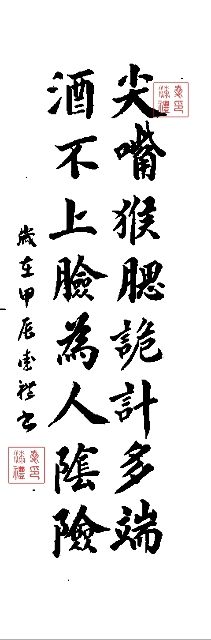 尖嘴猴腮詭計多端
酒不上臉為人陰險
歲在甲辰